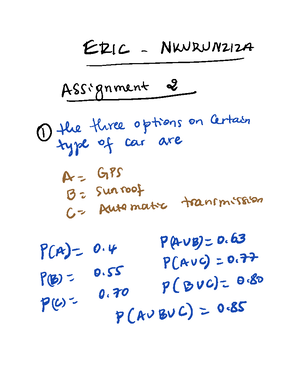 ERIC - NKURUNZIZA
Assignment 2
① the three options on Certain
type of car are
A = GPS
B = Sunroof
C = Automatic transmission
P(A) = 0.4 P(A∪B) = 0.63
P(B) = 0.55 P(A∪C) = 0.77
P(C) = 0.70 P(B∪C) = 0.80
P(A∪B∪C) = 0.85